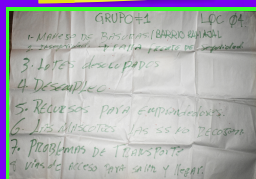 GRUPO #1 LOC 04
1- MANEJO DE BASURAS/BARRIO RAMAJAL
3. LOTES desocupados
4 Desempleo
5. RECURSOS PARA EMPRENDEDORES.
6. LAS MASCOTAS LAS SS NO RECOGEN
7. PROBLEMAS DE TRANSPORTE
vías de acceso para salir y llegar.